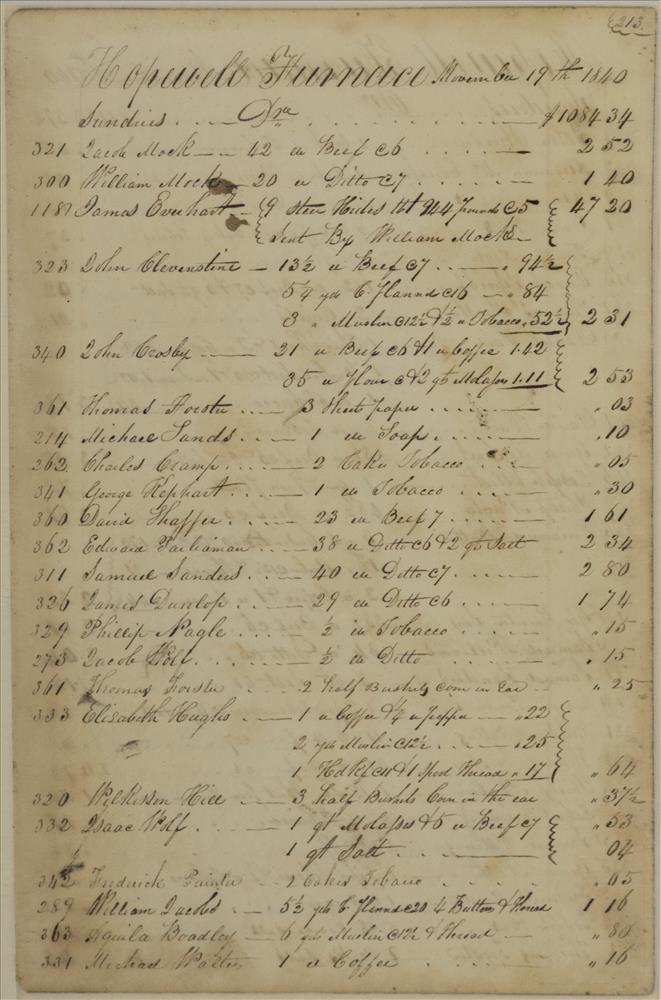 213
Hopewell Furnace November 19th 1840
Sundies . . . . Drs . . . . . . . $1084 34
321 Jacob Mock — 42 lb Beef c6 . . . . 2 52
300 William Mock — 20 lb Ditto c7 . . . . 1 40
118 James Everhart — 9 Steer Hides Wt 944 pounds c5 47 20
Sent By William Mock
323 John Clevenstine — 13½ lb Beef c7 . . . . " 94½
5¼ yds C. Flannel c16 — " 84
3 " Muslin c12½ & ½ lb Tobacco " 52½ 2 31
340 John Crosby — 21 lb Beef c6 & 1 lb Coffee 1.42
35 lb Flour c & 2 qt Molasses 1.11 2 53
361 Thomas Forster . . . — 3 Sheets paper . . . . " 03
214 Michael Sands . . . — 1 lb Soap . . . . " 10
262 Charles Cramp . . . — 2 Cakes Tobacco . . . . " 05
341 George Kephart . . . — 1 lb Tobacco . . . . " 30
360 David Shaffer . . . — 23 lb Beef 7 . . . . 1 61
362 Edward Parliaman . . — 38 lb Ditto c6 & 2 qt Salt 2 34
311 Samuel Sanders . . . — 40 lb Ditto c7 . . . . 2 80
326 James Dunlop . . . — 29 lb Ditto c6 . . . . 1 74
329 Phillip Nagle . . . — ½ lb Tobacco . . . . " 15
273 Jacob Wolf . . . — ½ lb Ditto . . . . " 15
361 Thomas Forster . . . 2 half Bushels corn in Ear — " 25
333 Elisabeth Hughs . . — 1 lb Coffee & ¼ lb pepper — " 22
2 yds Muslin c12½ . . . . " 25
1 Hdkf c11 & 1 Spool Thread " 17 " 64
320 Wilkison Hill — 3 half Bushels Corn in the ear " 37½
332 Isaac Wolf . . . — 1 qt Molasses & 5 lb Beef c7 " 53
1 qt Salt . . . . 04
342 Fredrick Painter — 2 Cakes Tobacco . . . . " 05
289 William Jacobs . . — 5½ yds C. Flannel c20 4 Buttons & Thread 1 16
363 Aquila Boadley — 6 yds Muslin c12½ & Thread — " 80
331 Michael Walters 1 lb Coffee . . . . " 16